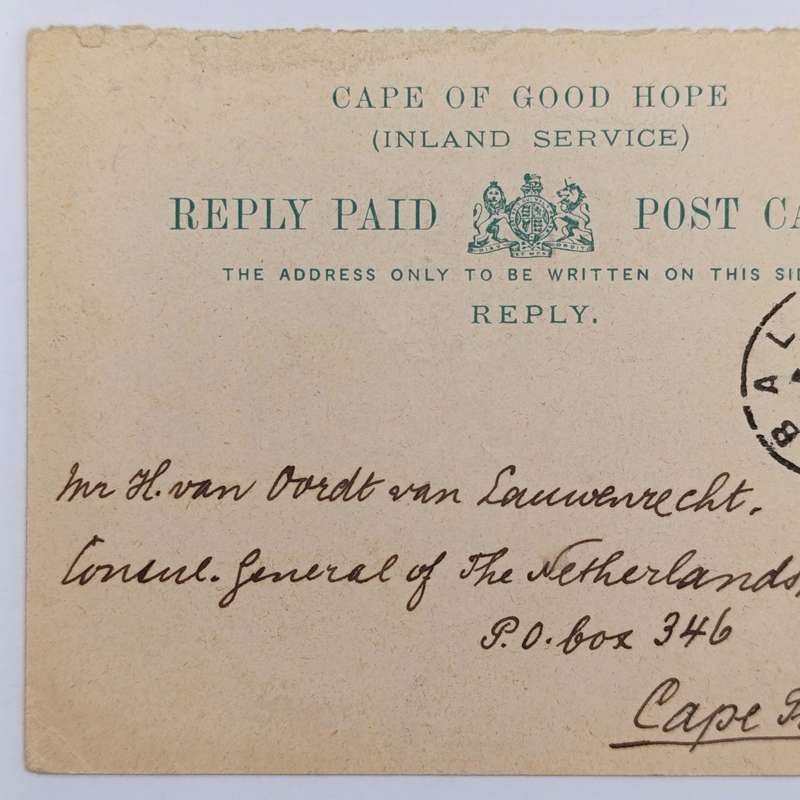 CAPE OF GOOD HOPE
(INLAND SERVICE)
REPLY PAID POST CA
THE ADDRESS ONLY TO BE WRITTEN ON THIS SID
REPLY.
BAL
Mr H. van Oordt van Lauwenrecht.
Consul. General of The Netherlands,
P.O. box 346
Cape